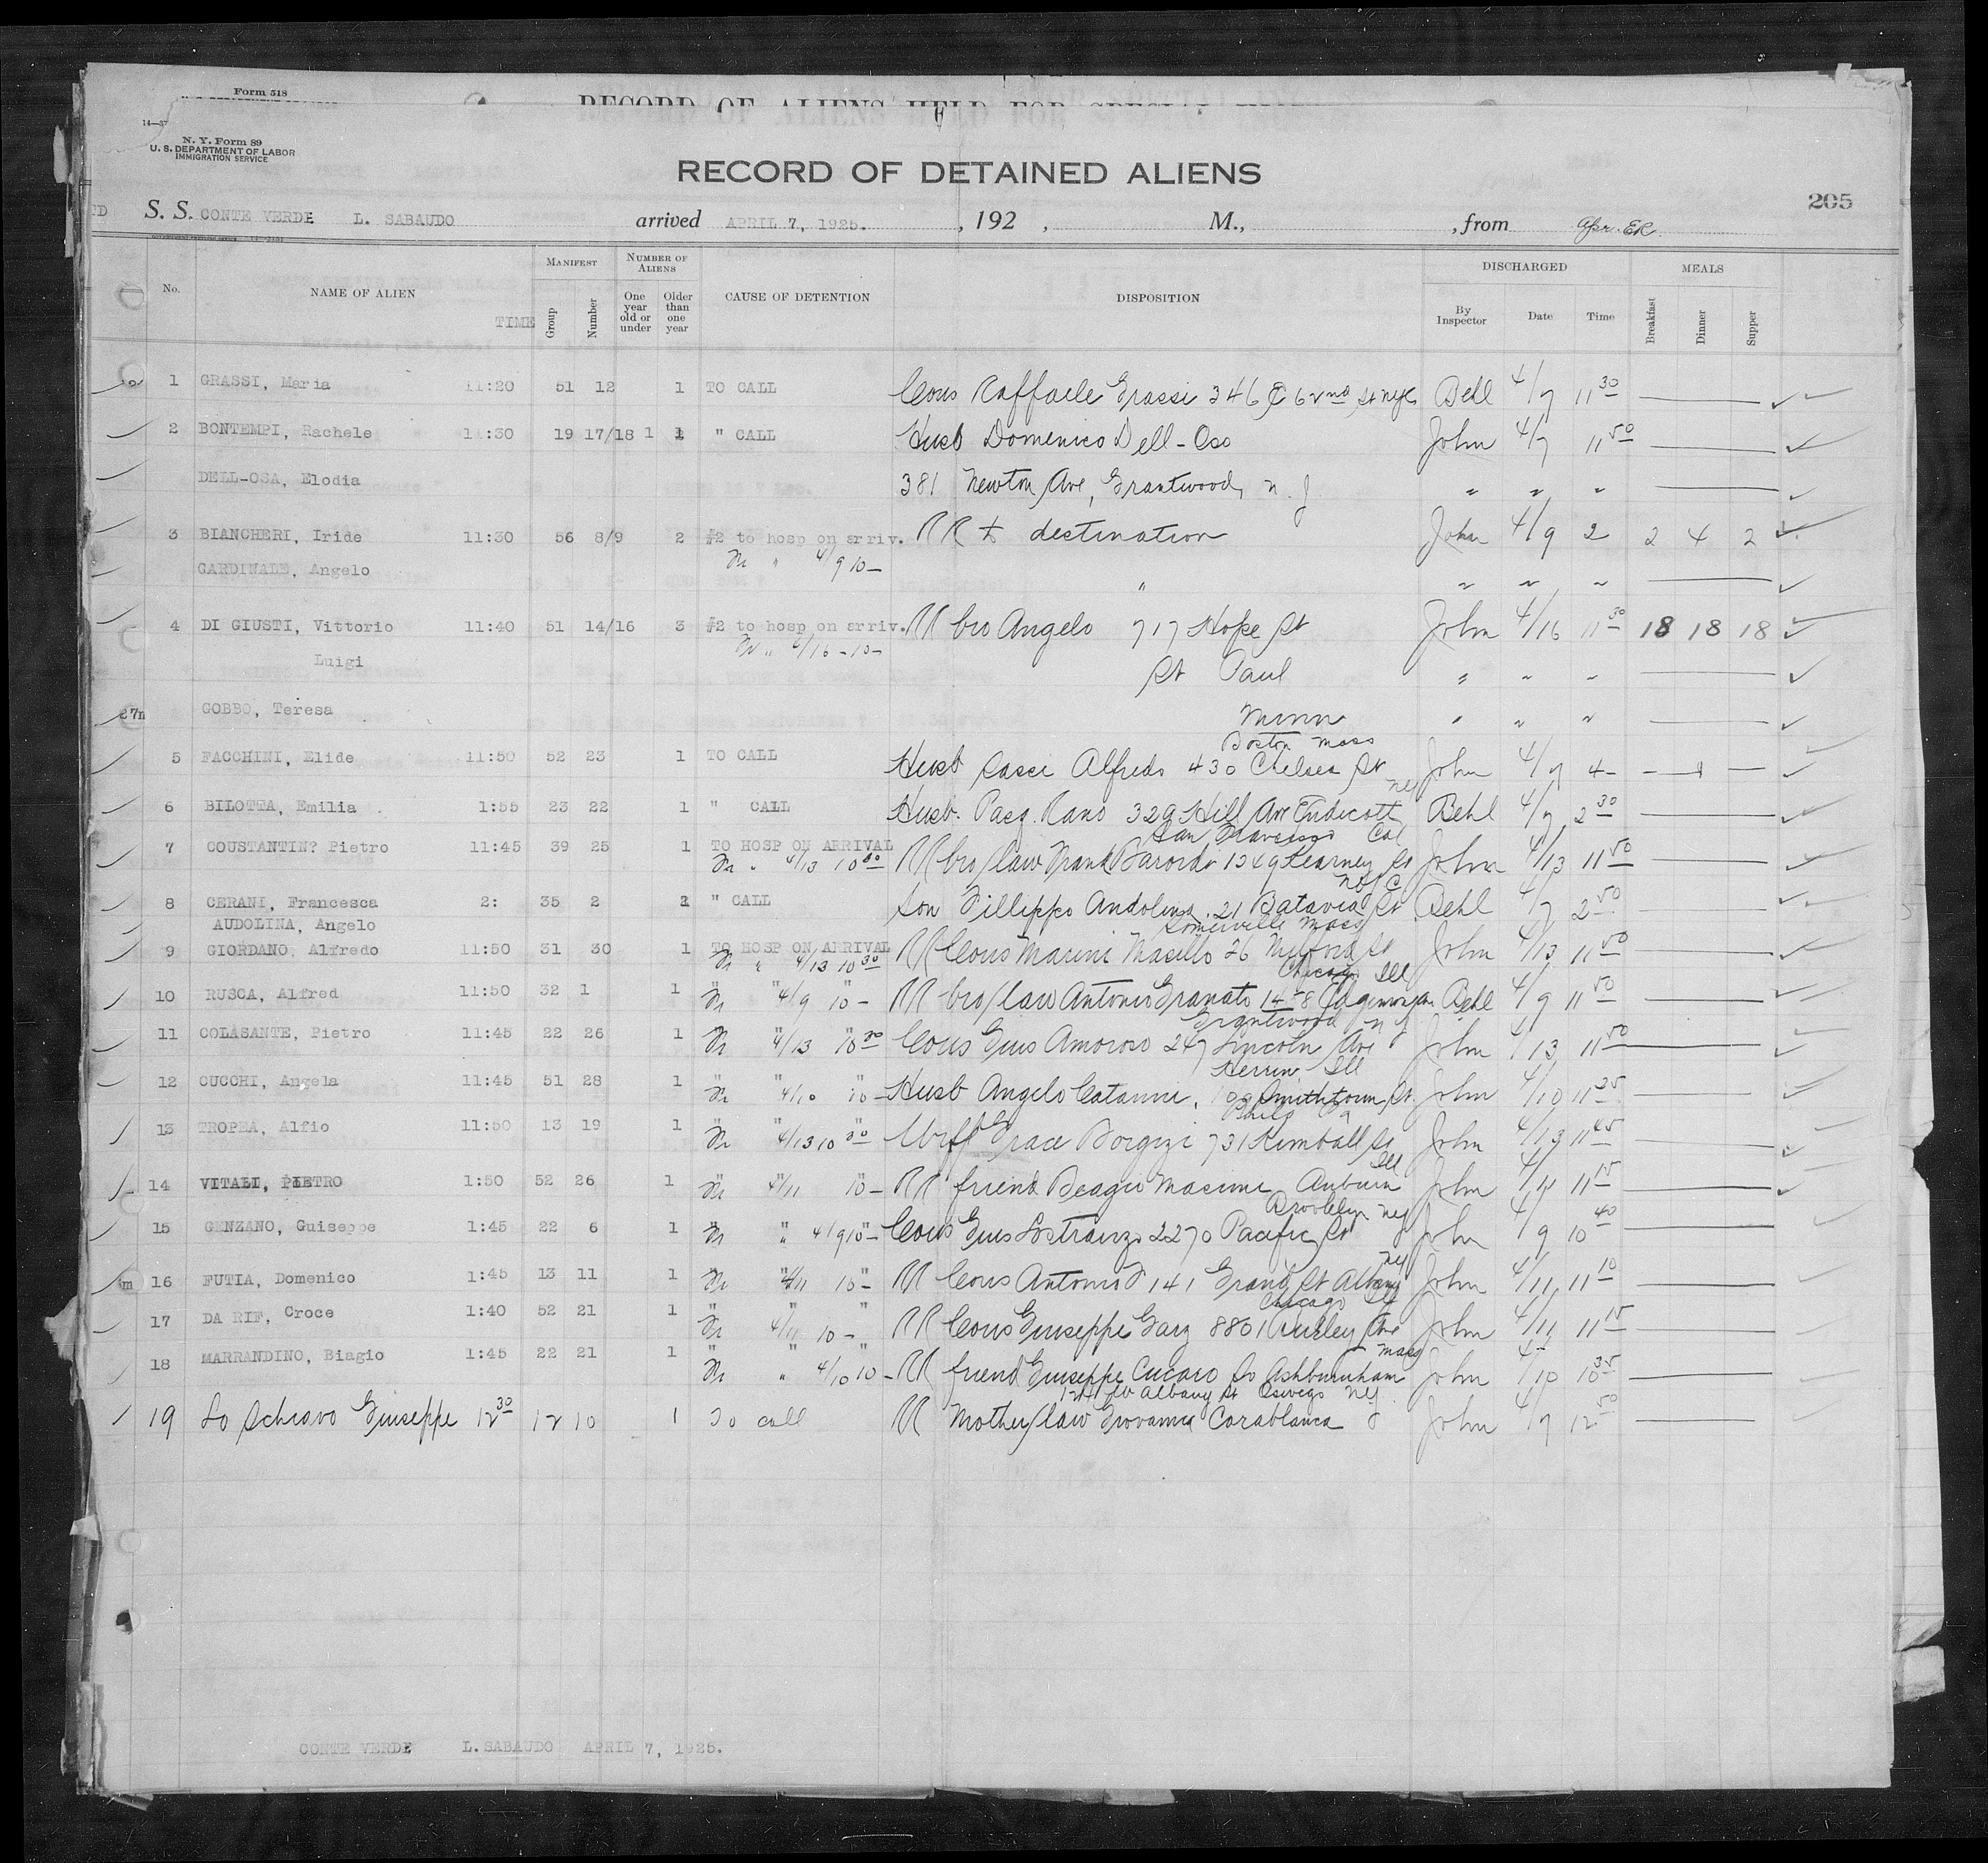 Form 518
RECORD OF ALIENS HELD FOR SPECIAL
N. Y. Form 89
U. S. DEPARTMENT OF LABOR
IMMIGRATION SERVICE
RECORD OF DETAINED ALIENS
205
S. S. CONTE VERDE L. SABAUDO arrived APRIL 7, 1925. , 192 , M., , from
No. NAME OF ALIEN TIME MANIFEST Group Number NUMBER OF ALIENS One year old or under Older than one year CAUSE OF DETENTION DISPOSITION DISCHARGED By Inspector Date Time MEALS Breakfast Dinner Supper
1 GRASSI, Maria 11:20 51 12 1 TO CALL Cous Raffaele Grassi 346 E 62nd St NYC Behl 4/7 11 30
2 BONTEMPI, Rachele 11:30 19 17/18 1 1 " CALL Husb Domenico Dell-Oso John 4/7 11 50
DELL-OSA, Elodia 381 Newton Ave, Grantwood, N. J " " "
3 BIANCHERI, Iride 11:30 56 8/9 2 #2 to hosp on arriv. RR to destination John 4/9 2 2 4 2
Fr " 4/9 10-
CARDINALE, Angelo " " " "
4 DI GIUSTI, Vittorio 11:40 51 14/16 3 #2 to hosp on arriv. RR bro Angelo 717 Hope St John 4/16 11 30 18 18 18
Fr " 4/16 - 10-
Luigi St Paul " " "
27m GOBBO, Teresa Minn " " "
Boston Mass
5 FACCHINI, Elide 11:50 52 23 1 TO CALL Husb Sassi Alfredo 430 Chelsea St John 4/7 4- - 1 -
NY
6 BILOTTA, Emilia 1:55 23 22 1 " CALL Husb. Pasq. Rano 329 Hill Ave Endicott Behl 4/7 2 30
San Francisco Cal
7 COUSTANTIN? Pietro 11:45 39 25 1 TO HOSP ON ARRIVAL RR bro/law Frank 1349 Kearney St John 4/13 11 50
Fr " 4/13 10 30
NYC
8 CERANI, Francesca 2: 35 2 2 " CALL Son Fillippo Andolina, 21 Batavia St Behl 4/7 2 50
AUDOLINA, Angelo
Somerville Mass
9 GIORDANO, Alfredo 11:50 31 30 1 TO HOSP ON ARRIVAL RR Cous Marini Masillo 26 Milford St John 4/13 11 50
Fr " 4/13 10 30
Chicago Ill
10 RUSCA, Alfred 11:50 32 1 1 " " " Fr 4/9 10- RR bro/law Antonio Granato Behl 4/9 11 50
Grantwood N J
11 COLASANTE, Pietro 11:45 22 26 1 " " " Fr 4/13 10 30 Cous Gius Amoroso 247 Lincoln Ave John 4/13 11 50
Herrin Ill
12 CUCCHI, Angela 11:45 51 28 1 " " " Fr 4/10 10- Husb Angelo Catanni, Smithtown St John 4/10 11 25
Phila Pa
13 TROPEA, Alfio 11:50 13 19 1 " " " Fr 4/13 10 30 Grace Borgizi 731 Kimball St John 4/13 11 45
Ill
14 VITALI, PIETRO 1:50 52 26 1 " " " Fr 4/11 10- RR friend Beagio Masimi Auburn John 4/11 11 15
Brooklyn NY
15 GENZANO, Guiseppe 1:45 22 6 1 " " " Fr 4/9 10- Cous Gius Lostranzo 2270 Pacific St John 4/9 10 40
NY
16 FUTIA, Domenico 1:45 13 11 1 " " " Fr 4/11 10- RR Cous Antonio F 141 Grand St Albany John 4/11 11 10
Chicago Ill
17 DA RIF, Croce 1:40 52 21 1 " " " Fr 4/11 10- RR Cous Giuseppe Garz 8801 Ave John 4/11 11 15
Mass
18 MARRANDINO, Biagio 1:45 22 21 1 " " " Fr " 4/10 10- RR friend Giuseppe Cucaro So Ashburnham John 4/10 10 35
W Albany St Oswego NY
19 Lo Schiavo Giuseppe 12 30 12 10 1 To call RR Mother/law Giovanna Casablanca John 4/7 12 50
CONTE VERDE L. SABAUDO APRIL 7, 1925.